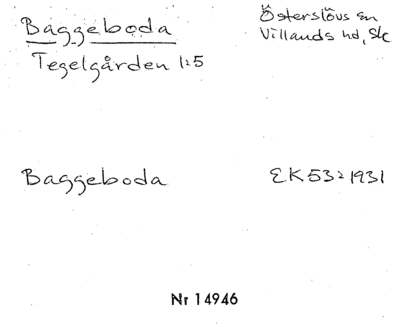 Baggeboda
Österslövs sn
Villands hd, Sk
Tegelgården 1:5
Baggeboda
EK53:1931
Nr 14946